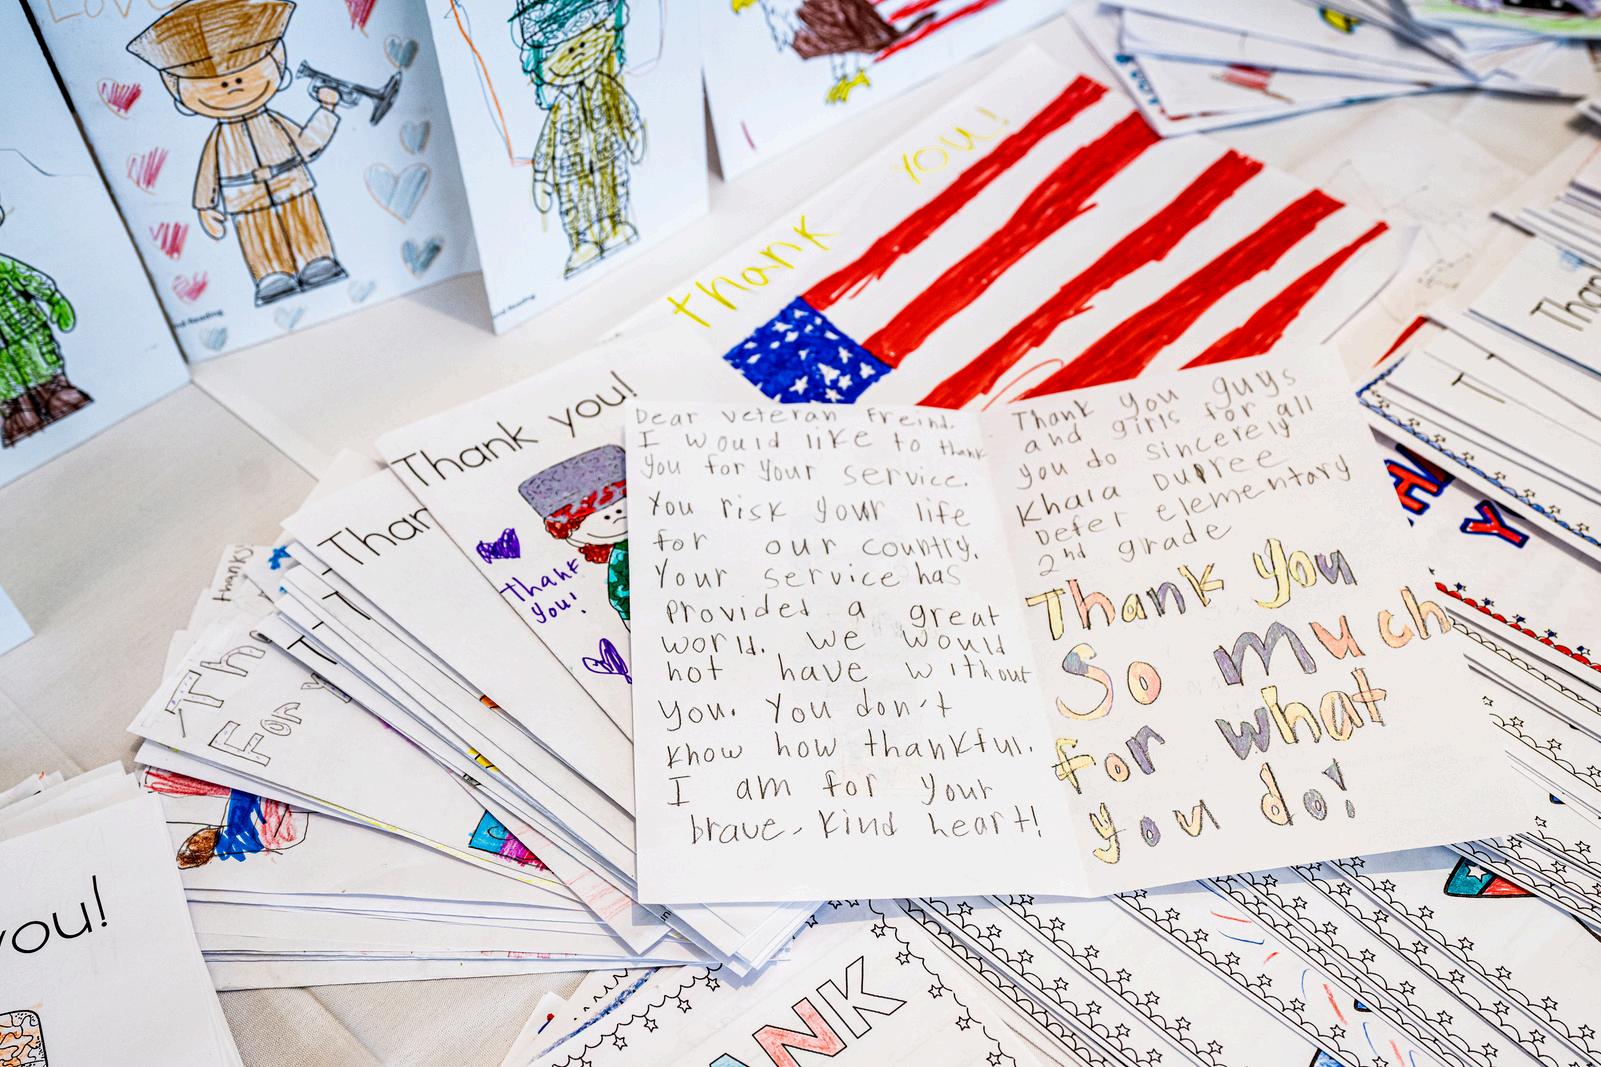 Love
nd Reading
nd Reading
thank you!
Thank you!
Thank
you!
Dear veteran Freind.
I would like to thank
you for your service.
You risk your life
for our country.
Your service has
Provided a great
world. we would
not have without
you. You don't
know how thankful.
I am for your
brave, kind heart!
Thank you guys
and girls for all
you do sincerely
Khala Dupree
Defer elementary
2nd grade
Thank you
So much
for what
you do!
Than
thank
Th
For y
you!
ANK
Than
T
Y